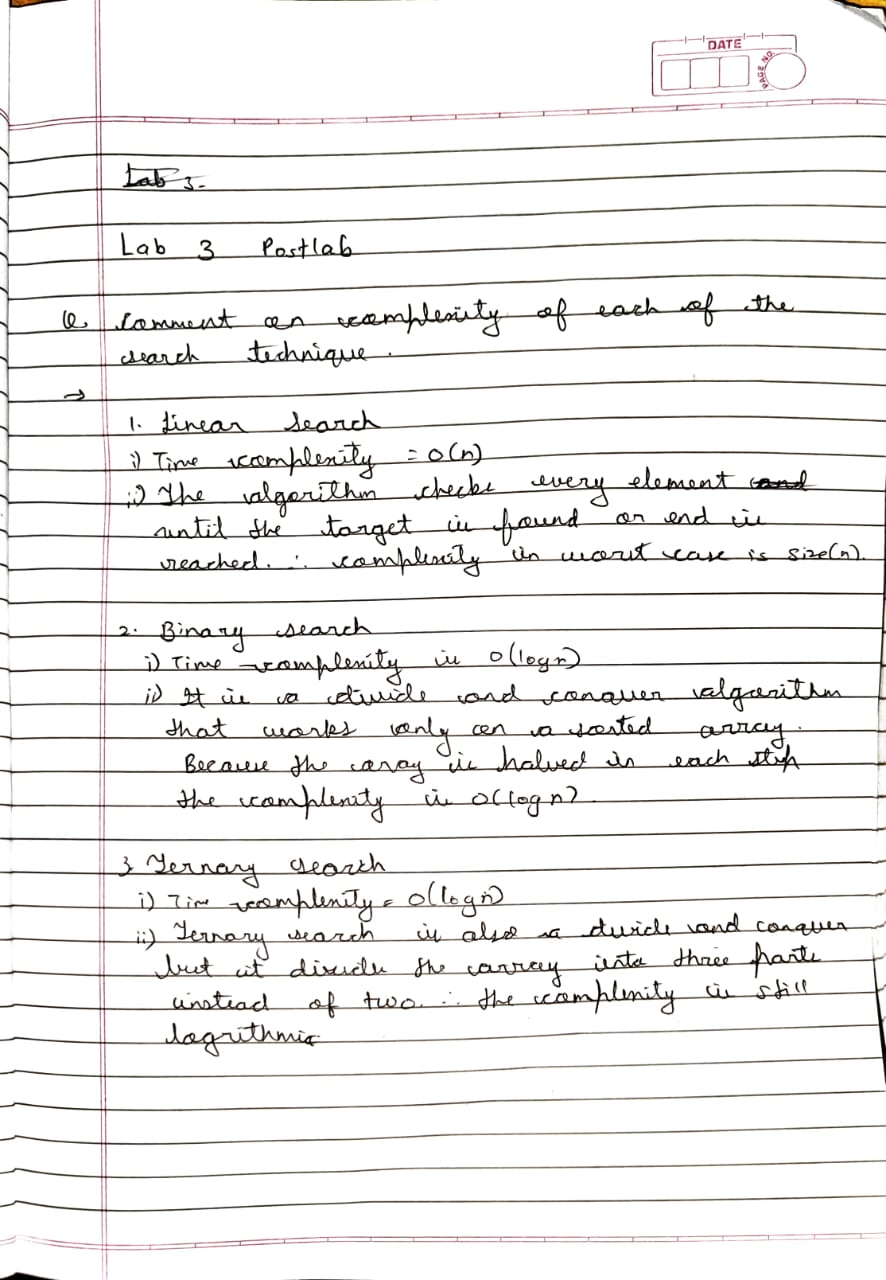 DATE
PAGE NO.
Lab 3-
Lab 3 Postlab
Q. Comment on complexity of each of the
search technique.
→
1. Linear Search
i) Time complexity = O(n)
ii) The algorithm checks every element and
until the target is found or end is
reached. ∴ complexity in worst case is size(n).
2. Binary search
i) Time complexity is O(logn)
ii) It is a divide and conquer algorithm
that works only on a sorted array.
Because the array is halved in each step
the complexity is O(logn).
3 Ternary search
i) Time complexity = O(logn)
ii) Ternary search is also a divide and conquer
but it divides the array into three parts
instead of two. ∴ the complexity is still
logrithmic